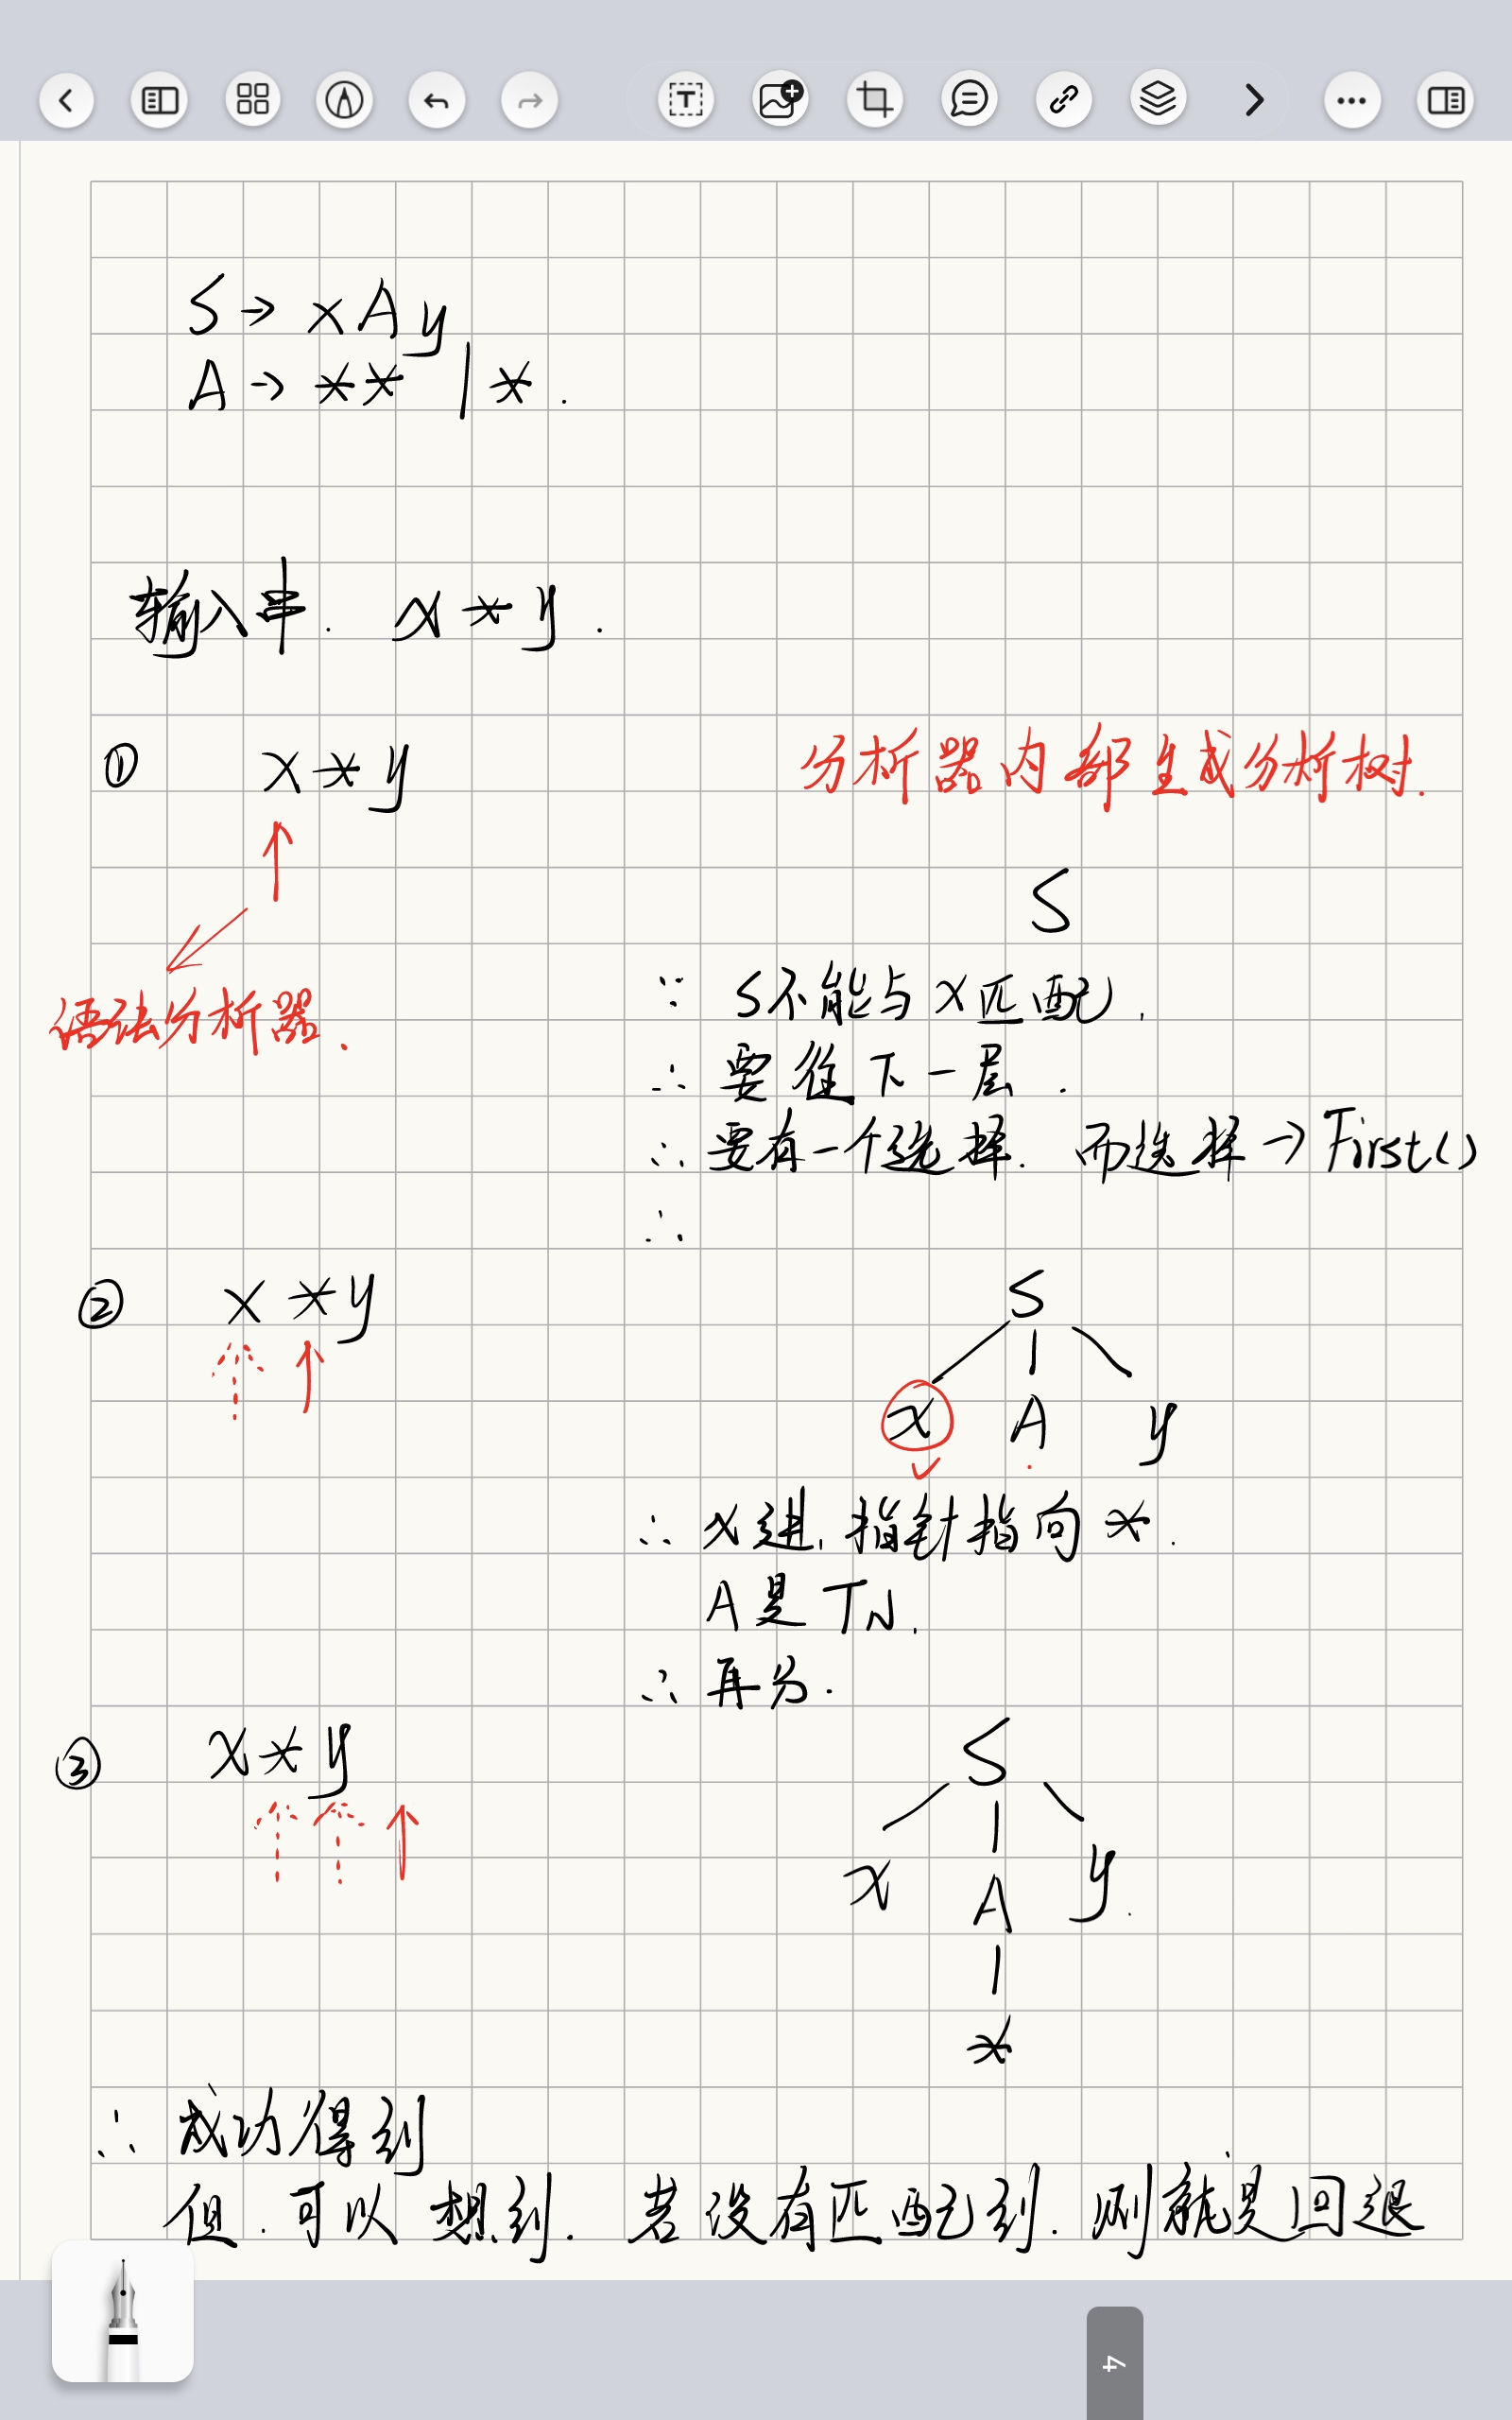 S → xAy
A → ** | *.
输入串. x*y.
① x*y
分析器内部生成分析树.
S
语法分析器.
∵ S不能与x匹配,
∴ 要往下一层.
∴ 要有一个选择. 而选择→First()
∴
② x*y
S
x A y
∴ x进, 指针指向*.
A是TN.
∴ 再分.
③ x*y
S
x A y.
*
∴ 成功得到
但. 可以想到. 若没有匹配到. 则就是回退
4